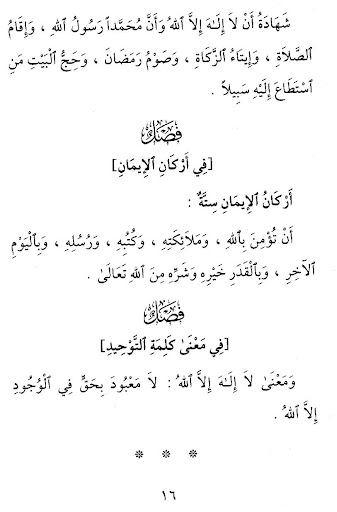 شَهَادَةُ أَنْ لَا إِلَـٰهَ إِلَّا ٱللهُ وَأَنَّ مُحَمَّداً رَسُولُ ٱللهِ ، وَإِقَامُ
ٱلصَّلَاةِ ، وَإِيتَاءُ ٱلزَّكَاةِ ، وَصَوْمُ رَمَضَانَ ، وَحَجُّ ٱلْبَيْتِ مَنِ
ٱسْتَطَاعَ إِلَيْهِ سَبِيلاً .
فَصْلٌ
[فِي أَرْكَانِ ٱلإِيمَانِ]
أَرْكَانُ ٱلإِيمَانِ سِتَّةٌ :
أَنْ تُؤْمِنَ بِٱللهِ ، وَمَلَائِكَتِهِ ، وَكُتُبِهِ ، وَرُسُلِهِ ، وَبِٱلْيَوْمِ
ٱلآخِرِ ، وَبِٱلْقَدَرِ خَيْرِهِ وَشَرِّهِ مِنَ ٱللهِ تَعَالَىٰ .
فَصْلٌ
[فِي مَعْنَىٰ كَلِمَةِ ٱلتَّوْحِيدِ]
وَمَعْنَىٰ لَا إِلَـٰهَ إِلَّا ٱللهُ : لَا مَعْبُودَ بِحَقٍّ فِي ٱلْوُجُودِ
إِلَّا ٱللهُ .
* * *
١٦